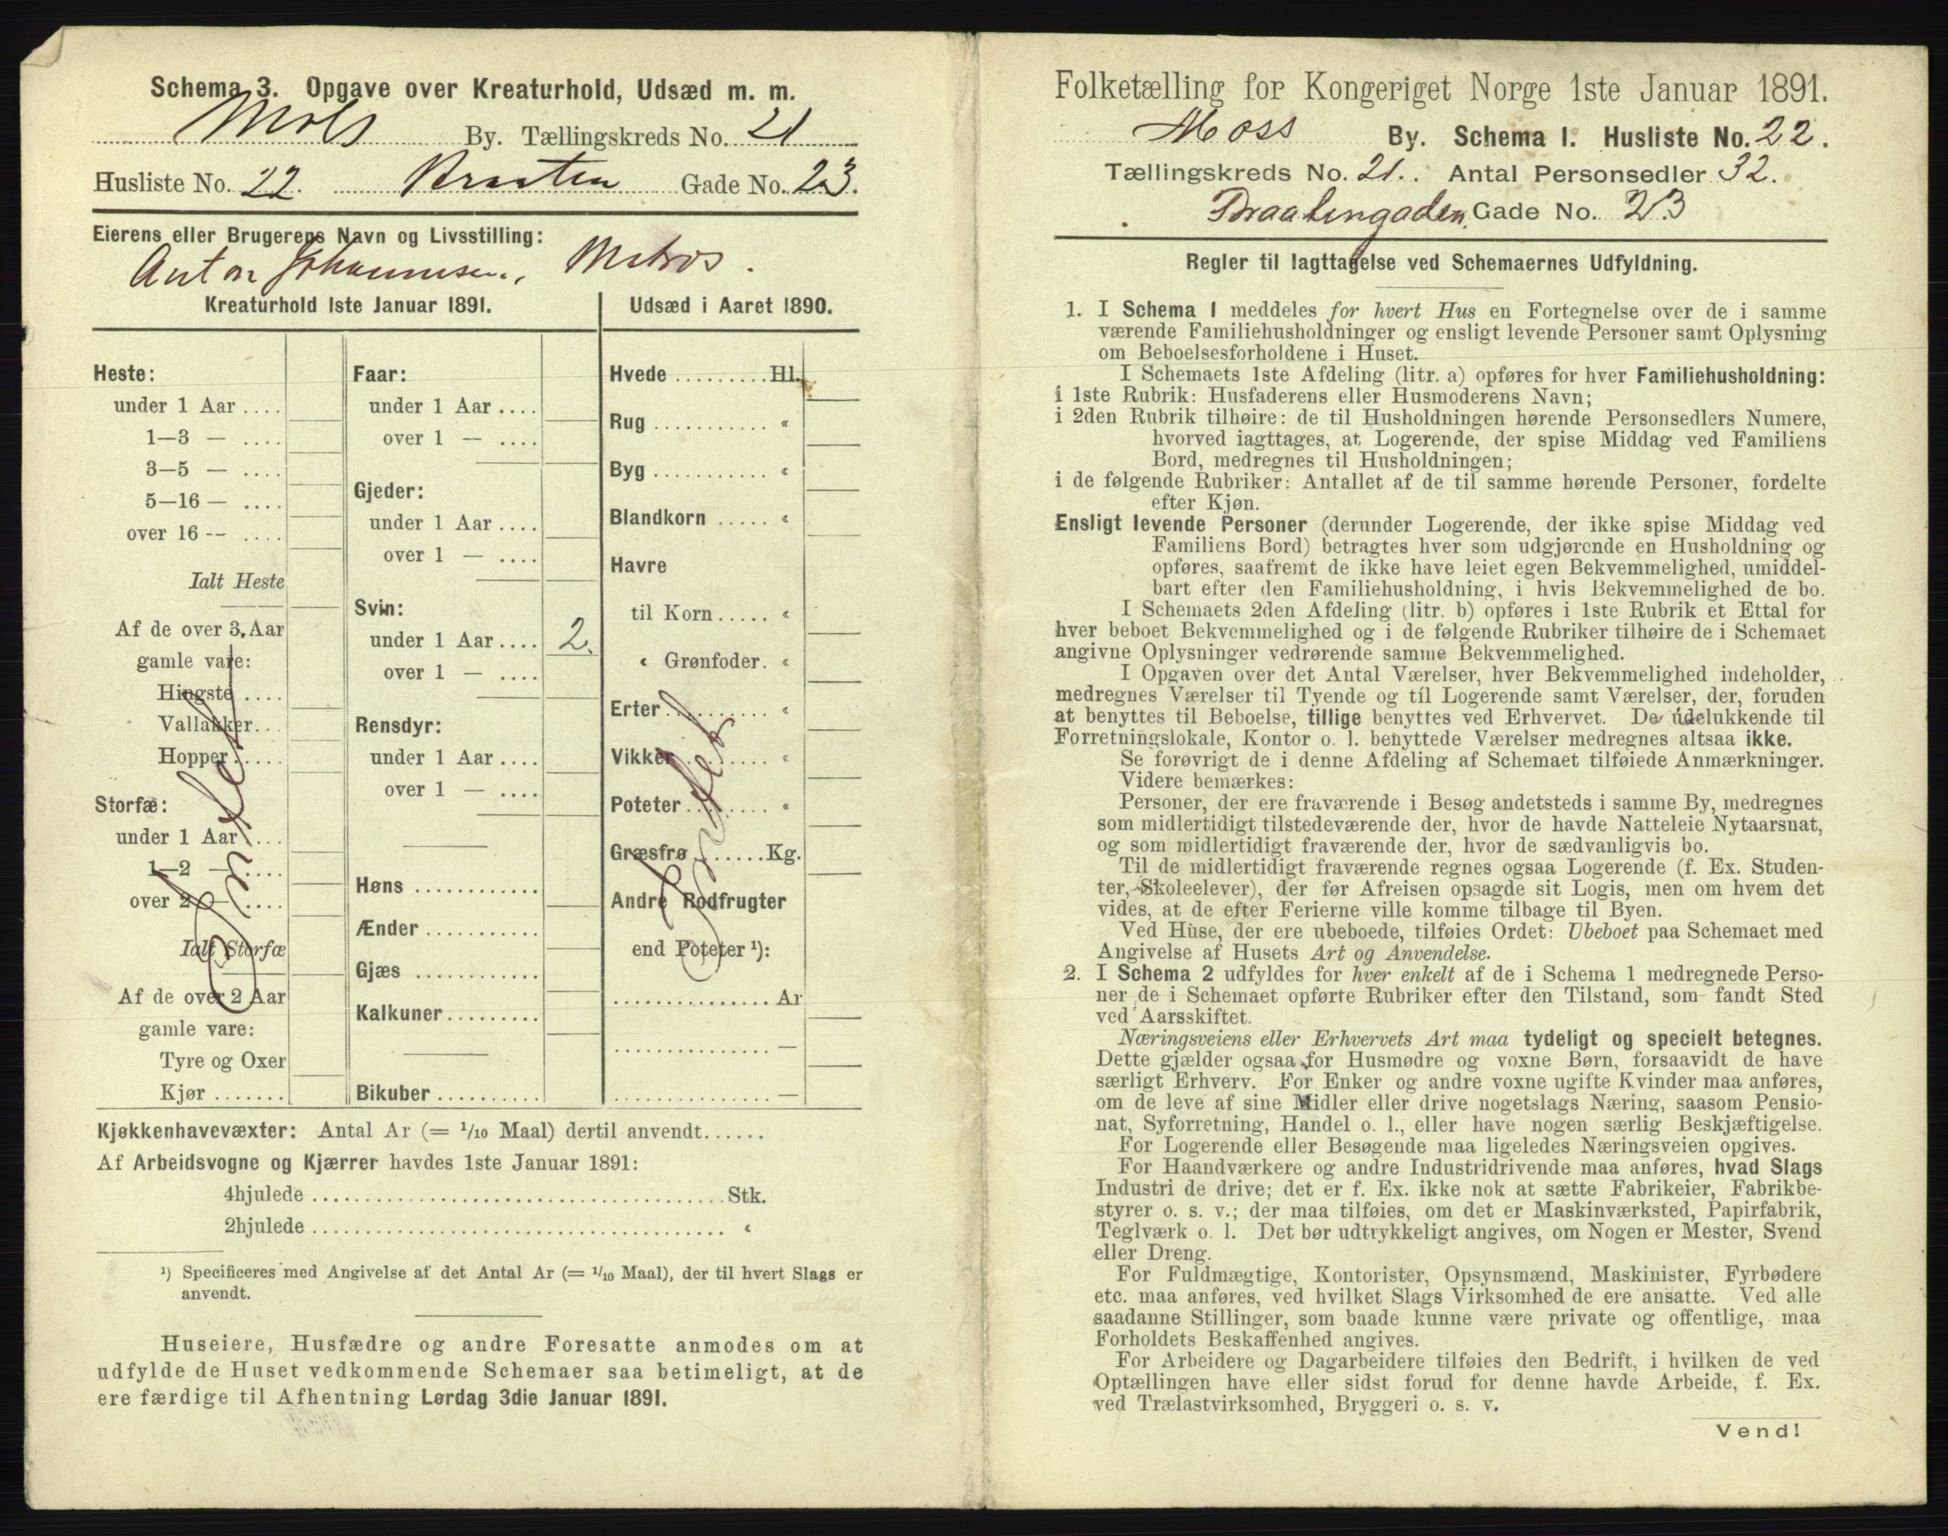 Schema 3. Opgave over Kreaturhold, Udsæd m. m.
Moss By. Tællingskreds No. 21
Husliste No. 22. Braaten Gade No. 23.
Eierens eller Brugerens Navn og Livsstilling:
Anton Johannesen, Matros.
Kreaturhold 1ste Januar 1891.
Heste:
under 1 Aar ....
1—3 — ....
3—5 — ....
5—16 — ....
over 16 -- ....
Ialt Heste
Af de over 3 Aar
gamle vare:
Hingste ....
Vallakker...
Hopper.....
Storfæ:
under 1 Aar ....
1—2 — ....
over 2 — ....
Ialt Storfæ
Af de over 2 Aar
gamle vare:
Tyre og Oxer
Kjør .......
Intet
Faar:
under 1 Aar ....
over 1 — ....
Gjeder:
under 1 Aar ....
over 1 — ....
Svin:
under 1 Aar .... 2.
over 1 — ....
Rensdyr:
under 1 Aar ....
over 1 — ....
Høns ............
Ænder ..........
Gjæs ............
Kalkuner.........
Bikuber ..........
Udsæd i Aaret 1890.
Hvede ......... Hl.
Rug ........... «
Byg ........... «
Blandkorn ..... «
Havre
til Korn ..... «
« Grønfoder. «
Erter.......... «
Vikker ........ «
Poteter ........ «
Græsfrø ...... Kg.
Andre Rodfrugter
end Poteter ¹):
............... Ar
............... —
............... —
Intet
Kjøkkenhavevæxter: Antal Ar (= 1/10 Maal) dertil anvendt......
Af Arbeidsvogne og Kjærrer havdes 1ste Januar 1891:
4hjulede ........................................ Stk.
2hjulede ........................................ «
¹) Specificeres med Angivelse af det Antal Ar (= 1/10 Maal), der til hvert Slags er
anvendt.
Huseiere, Husfædre og andre Foresatte anmodes om at
udfylde de Huset vedkommende Schemaer saa betimeligt, at de
ere færdige til Afhentning Lørdag 3die Januar 1891.
Folketælling for Kongeriget Norge 1ste Januar 1891.
Moss By. Schema 1. Husliste No. 22.
Tællingskreds No. 21. Antal Personsedler 32.
Braatengaden Gade No. 23
Regler til Iagttagelse ved Schemaernes Udfyldning.
1. I Schema 1 meddeles for hvert Hus en Fortegnelse over de i samme
værende Familiehusholdninger og ensligt levende Personer samt Oplysning
om Beboelsesforholdene i Huset.
I Schemaets 1ste Afdeling (litr. a) opføres for hver Familiehusholdning:
i 1ste Rubrik: Husfaderens eller Husmoderens Navn;
i 2den Rubrik tilhøire: de til Husholdningen hørende Personsedlers Numere,
hvorved iagttages, at Logerende, der spise Middag ved Familiens
Bord, medregnes til Husholdningen;
i de følgende Rubriker: Antallet af de til samme hørende Personer, fordelte
efter Kjøn.
Ensligt levende Personer (derunder Logerende, der ikke spise Middag ved
Familiens Bord) betragtes hver som udgjørende en Husholdning og
opføres, saafremt de ikke have leiet egen Bekvemmelighed, umiddel-
bart efter den Familiehusholdning, i hvis Bekvemmelighed de bo.
I Schemaets 2den Afdeling (litr. b) opføres i 1ste Rubrik et Ettal for
hver beboet Bekvemmelighed og i de følgende Rubriker tilhøire de i Schemaet
angivne Oplysninger vedrørende samme Bekvemmelighed.
I Opgaven over det Antal Værelser, hver Bekvemmelighed indeholder,
medregnes Værelser til Tyende og til Logerende samt Værelser, der, foruden
at benyttes til Beboelse, tillige benyttes ved Erhvervet. De udelukkende til
Forretningslokale, Kontor o. l. benyttede Værelser medregnes altsaa ikke.
Se forøvrigt de i denne Afdeling af Schemaet tilføiede Anmærkninger.
Videre bemærkes:
Personer, der ere fraværende i Besøg andetsteds i samme By, medregnes
som midlertidigt tilstedeværende der, hvor de havde Natteleie Nytaarsnat,
og som midlertidigt fraværende der, hvor de sædvanligvis bo.
Til de midlertidigt fraværende regnes ogsaa Logerende (f. Ex. Studen-
ter, Skoleelever), der før Afreisen opsagde sit Logis, men om hvem det
vides, at de efter Ferierne ville komme tilbage til Byen.
Ved Huse, der ere ubeboede, tilføies Ordet: Ubeboet paa Schemaet med
Angivelse af Husets Art og Anvendelse.
2. I Schema 2 udfyldes for hver enkelt af de i Schema 1 medregnede Perso-
ner de i Schemaet opførte Rubriker efter den Tilstand, som fandt Sted
ved Aarsskiftet.
Næringsveiens eller Erhvervets Art maa tydeligt og specielt betegnes.
Dette gjælder ogsaa for Husmødre og voxne Børn, forsaavidt de have
særligt Erhverv. For Enker og andre voxne ugifte Kvinder maa anføres,
om de leve af sine Midler eller drive nogetslags Næring, saasom Pensio-
nat, Syforretning, Handel o. l., eller have nogen særlig Beskjæftigelse.
For Logerende eller Besøgende maa ligeledes Næringsveien opgives.
For Haandværkere og andre Industridrivende maa anføres, hvad Slags
Industri de drive; det er f. Ex. ikke nok at sætte Fabrikeier, Fabrikbe-
styrer o. s. v.; der maa tilføies, om det er Maskinværksted, Papirfabrik,
Teglværk o. l. Det bør udtrykkeligt angives, om Nogen er Mester, Svend
eller Dreng.
For Fuldmægtige, Kontorister, Opsynsmænd, Maskinister, Fyrbødere
etc. maa anføres, ved hvilket Slags Virksomhed de ere ansatte. Ved alle
saadanne Stillinger, som baade kunne være private og offentlige, maa
Forholdets Beskaffenhed angives.
For Arbeidere og Dagarbeidere tilføies den Bedrift, i hvilken de ved
Optællingen have eller sidst forud for denne havde Arbeide, f. Ex.
ved Trælastvirksomhed, Bryggeri o. s. v.
Vend!